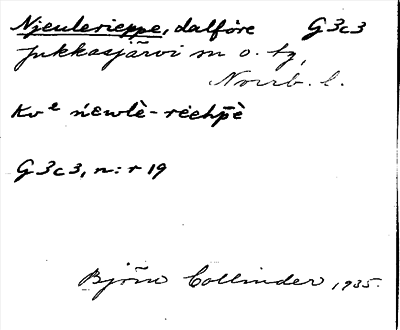 Njeulerieppe, dalföre G3c3
Jukkasjärvi sn o. tg,
Norrb. l.
Kvᵉ ńewlè-rèehp̄è
G3c3, n:r 19
Björn Collinder 1935.